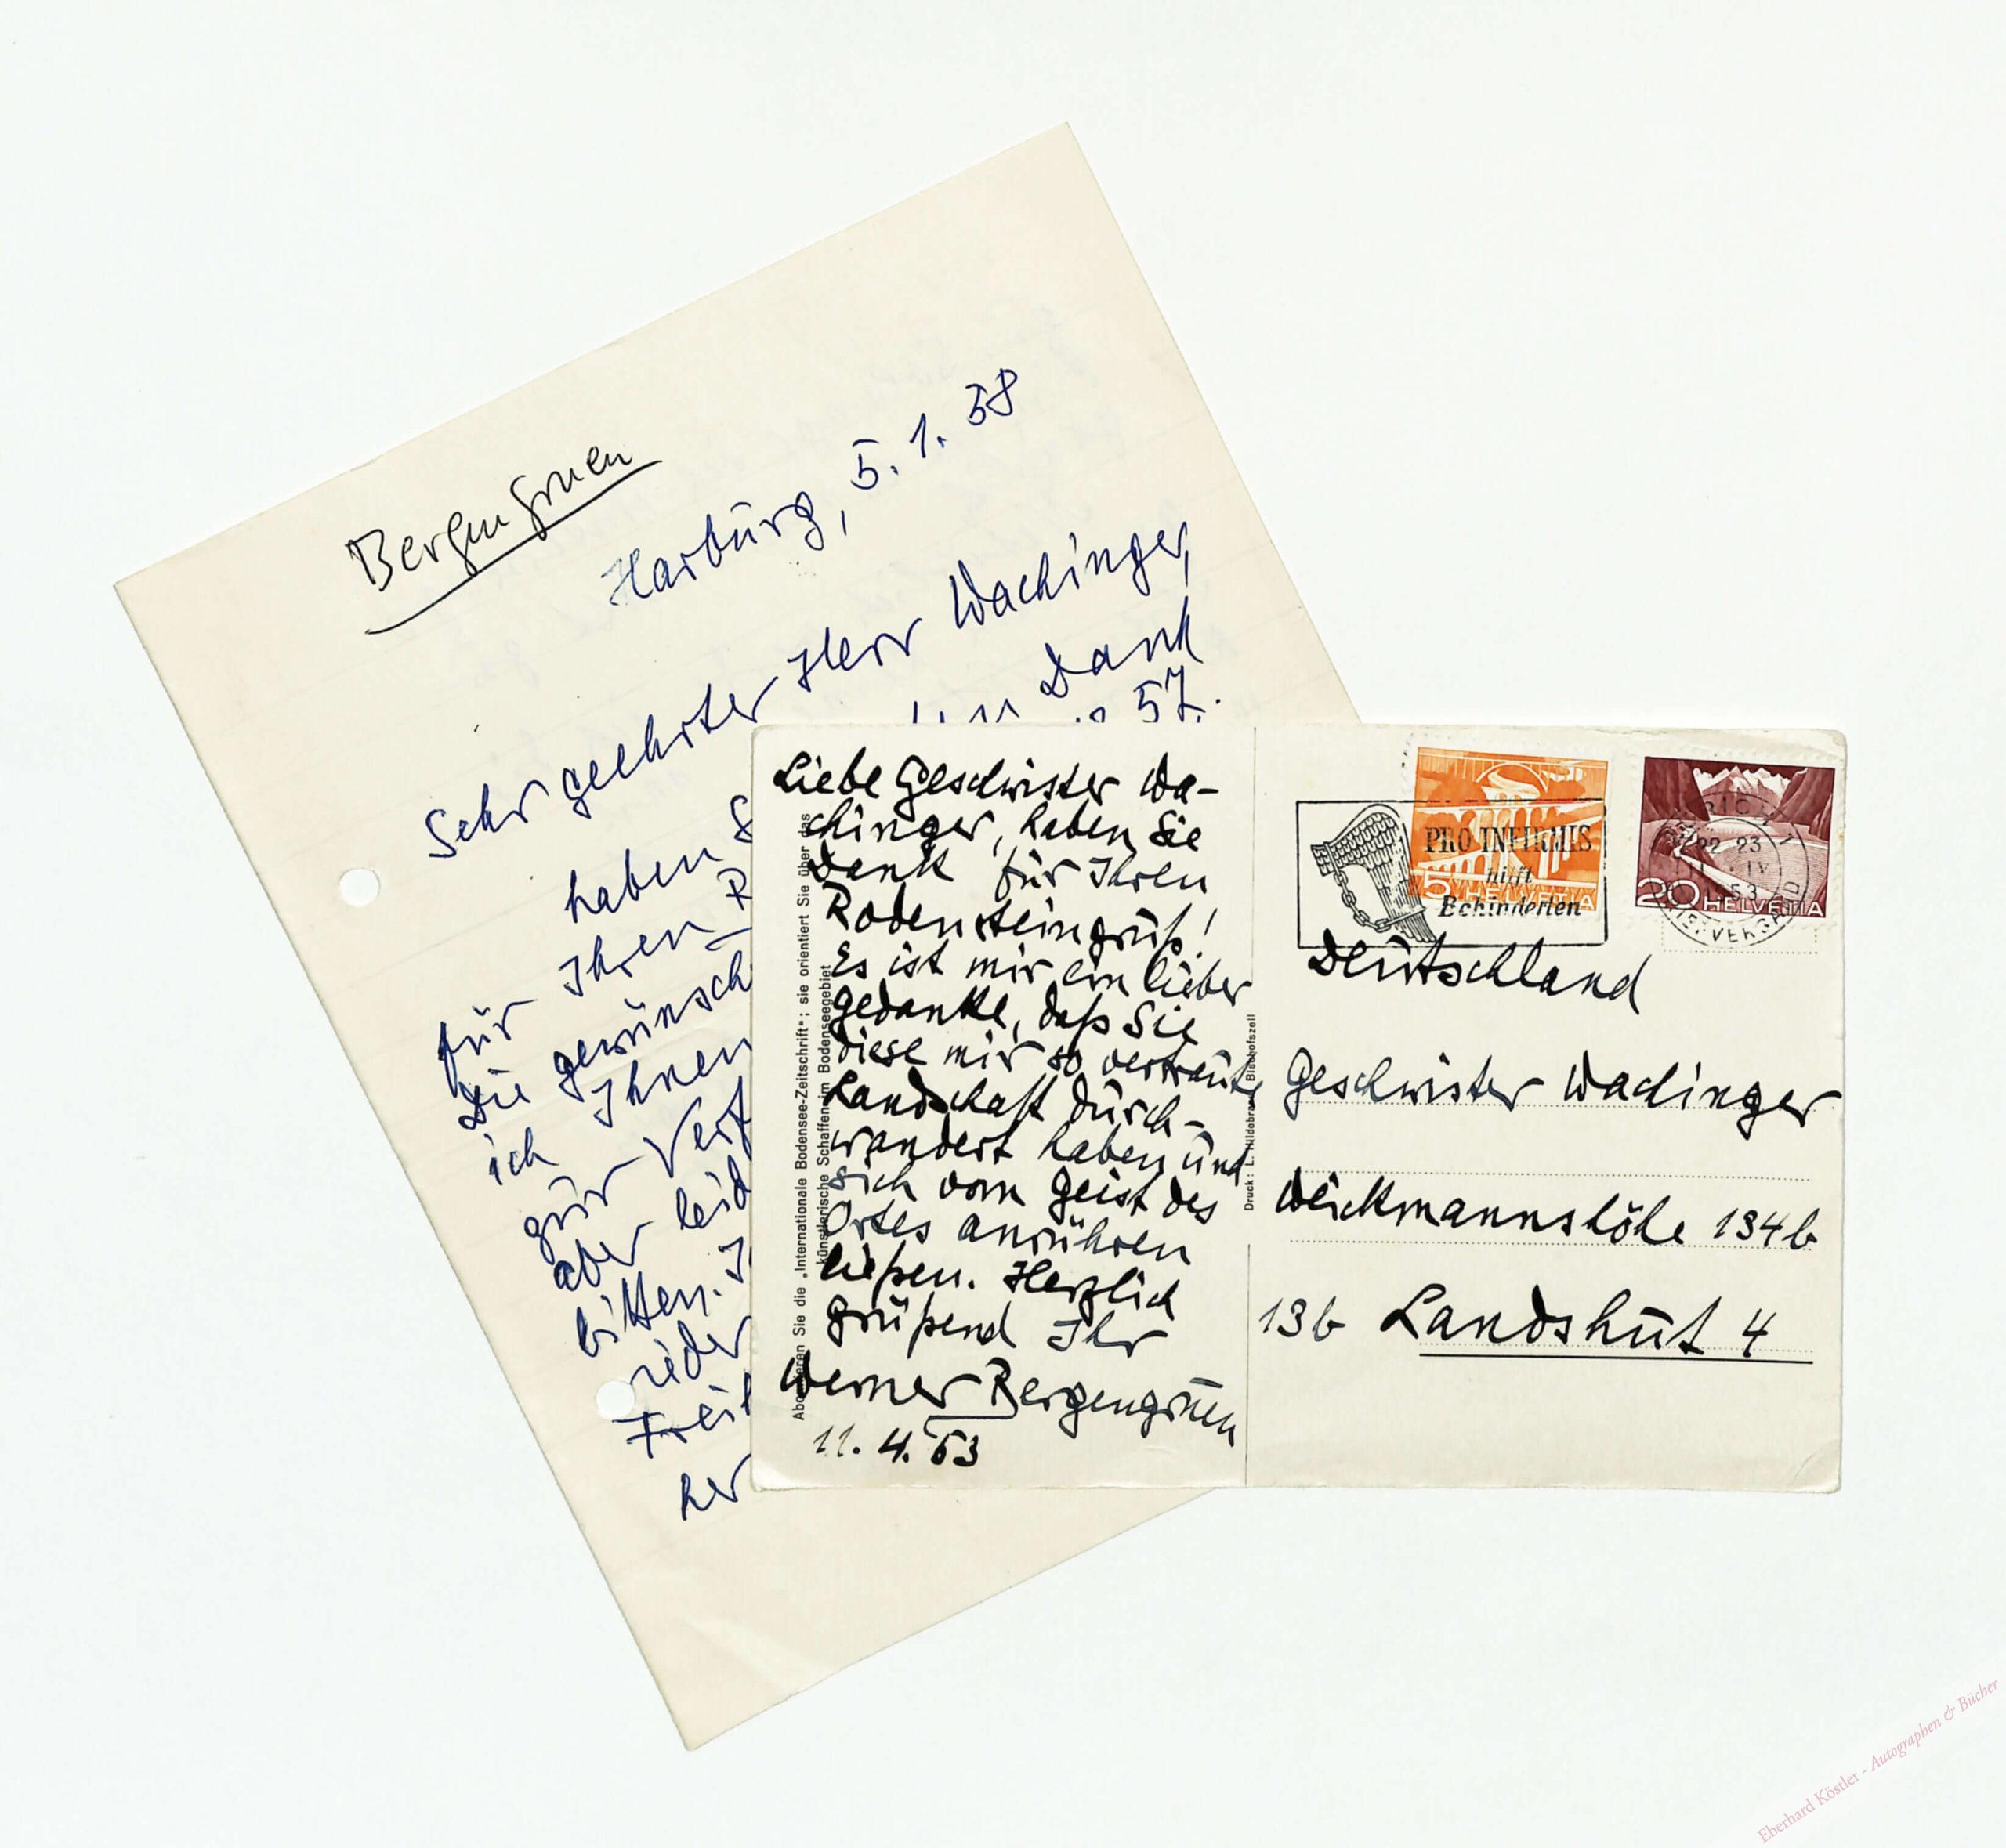 Bergengruen
Harburg, 5. 1. 58
Sehr geehrter Herr Wachinger,
haben Dank
für Ihren 57.
Die gewünsch
ich Ihnen
zur Verf
aber leid
bitten.
her
Liebe Geschwister Wa-
chinger, haben Sie
Dank für Ihren
Rodensteingruß!
Es ist mir ein lieber
Gedanke, daß Sie
diese mir so vertraute
Landschaft durch-
wandert haben und
sich vom Geist des
Ortes anrühren
ließen. Herzlich
grüßend Ihr
Werner Bergengruen
11. 4. 53
Abonnieren Sie die „Internationale Bodensee-Zeitschrift"; sie orientiert Sie über das
künstlerische Schaffen im Bodenseegebiet
Druck: L. Hildebrand Bischofszell
PRO INFIRMIS
hilft
Behinderten
5 HELVETIA
20 HELVETIA
22 23
IV
53
BRIEFVERSAND
Deutschland
Geschwister Wachinger
Weickmannshöhe 134b
13b Landshut 4
Eberhard Köstler - Autographen & Bücher